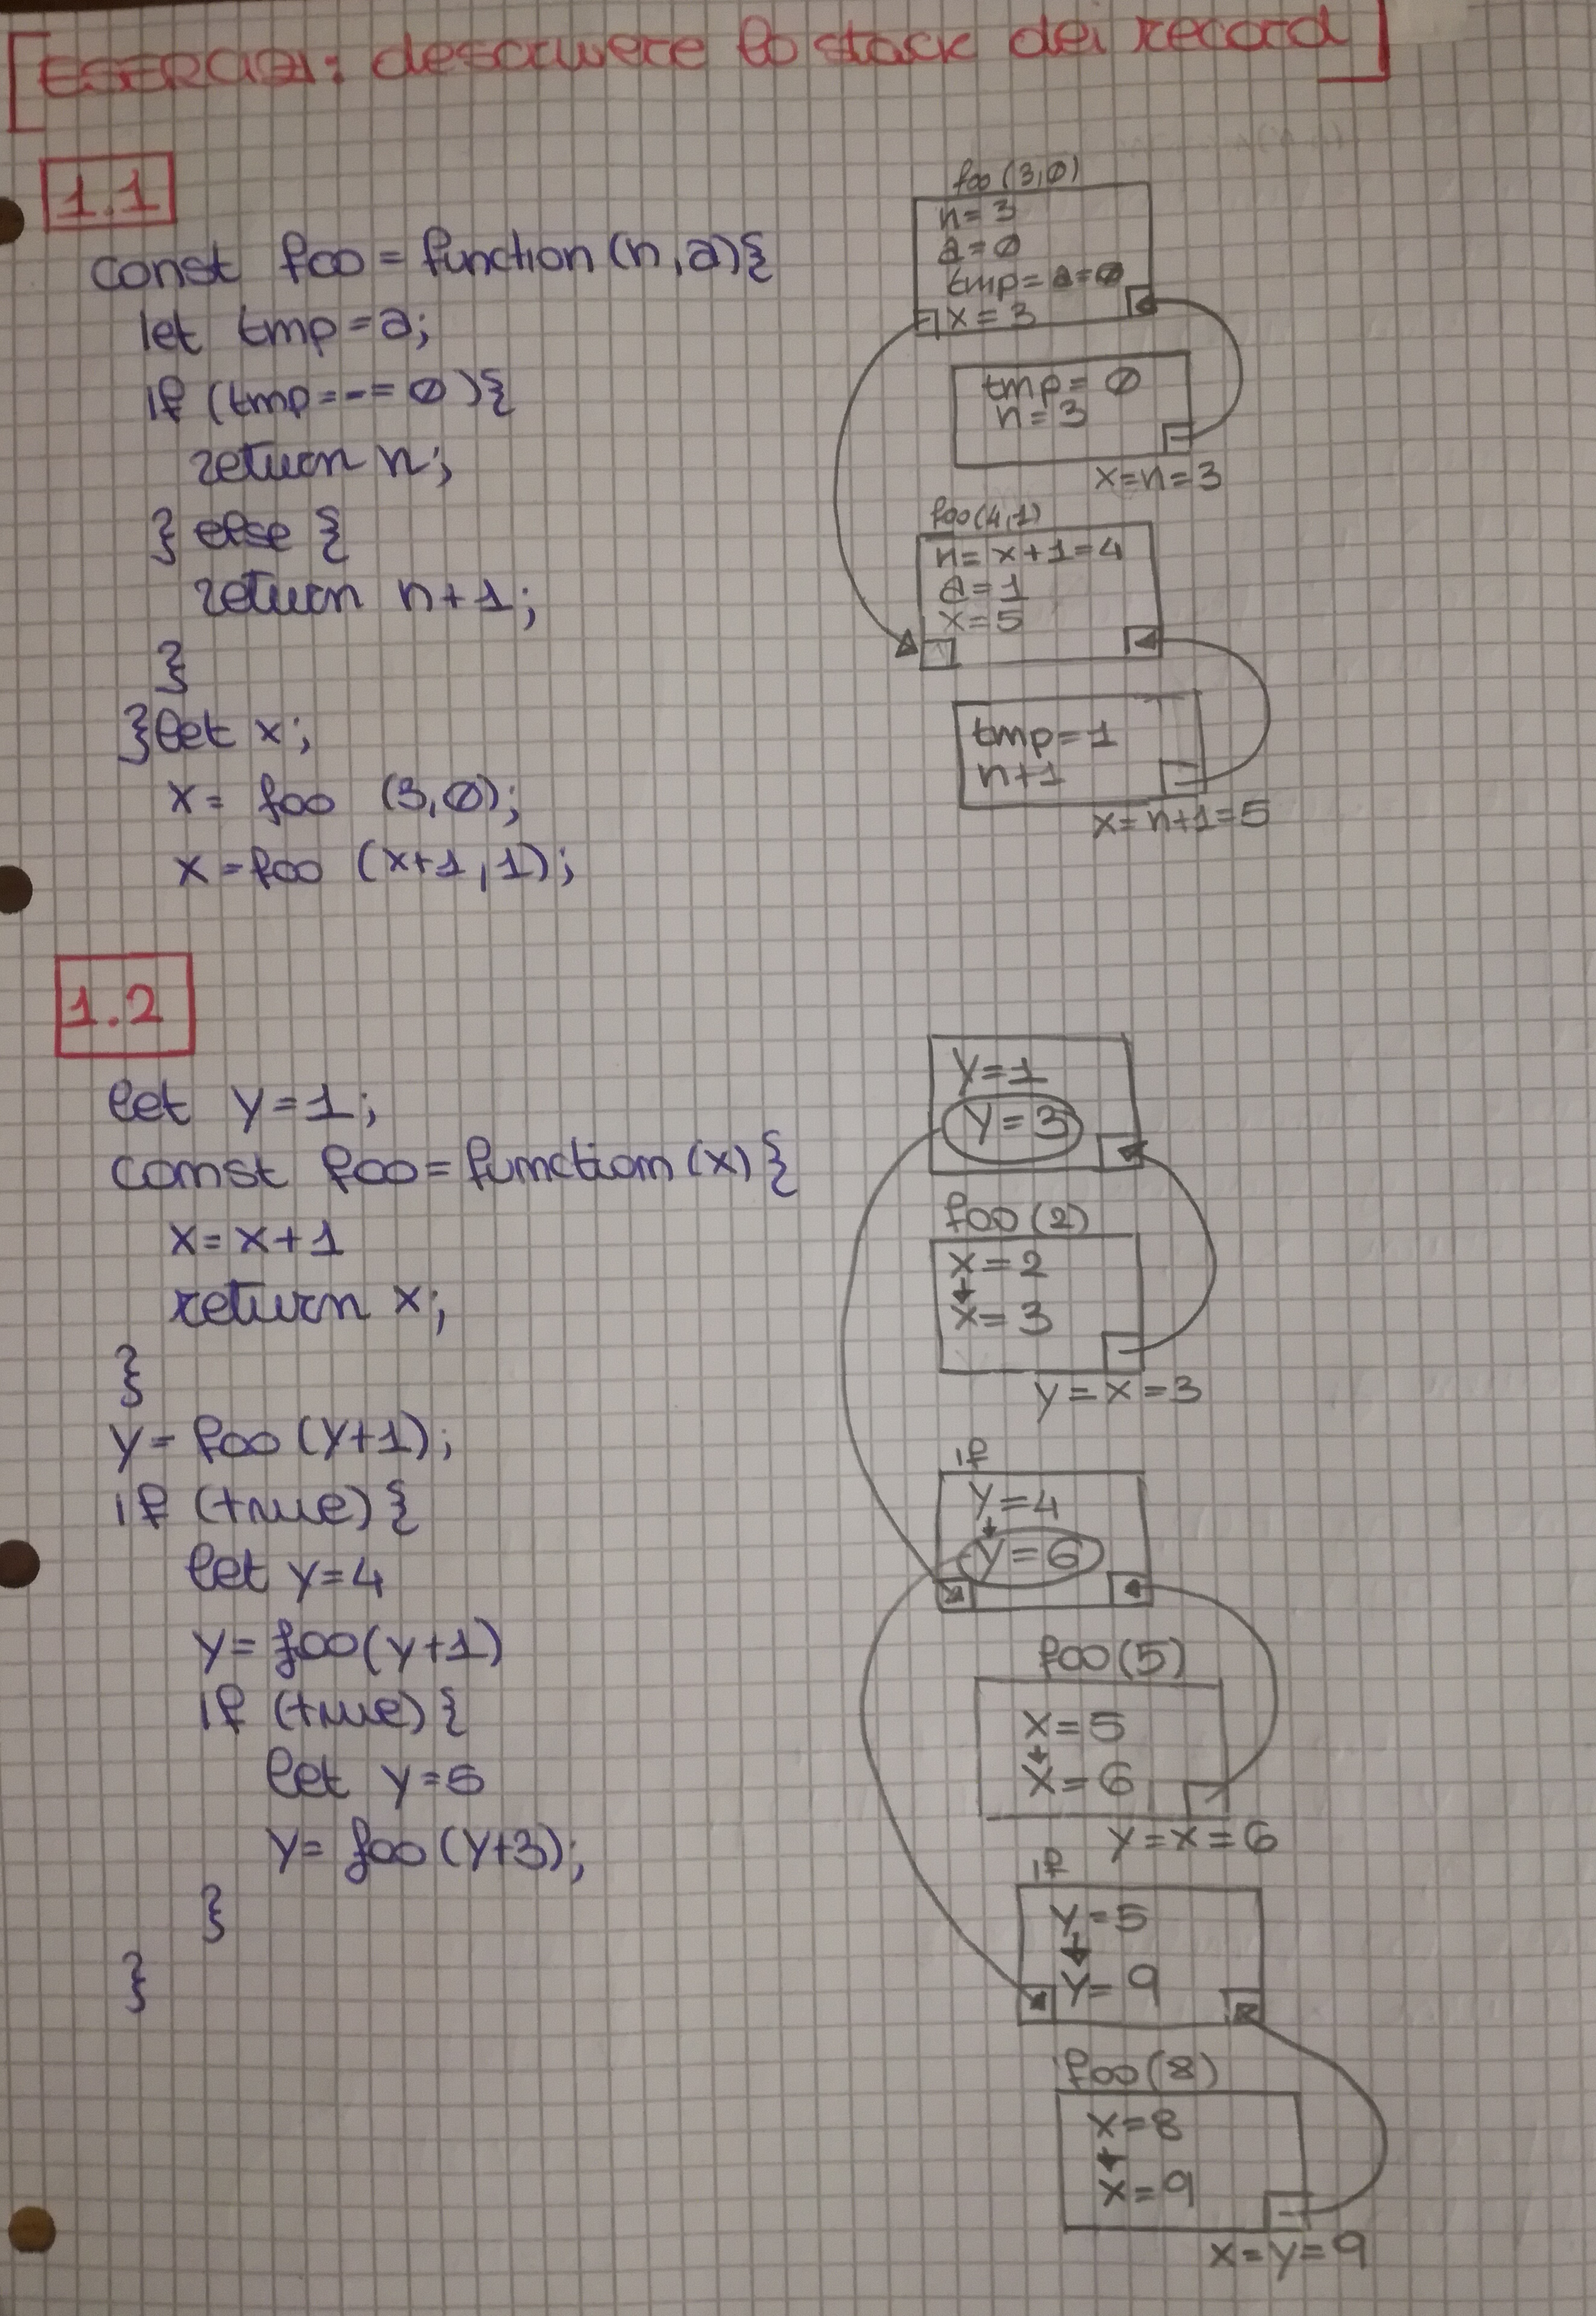 [ESERCIZI: descrivere lo stack dei record]
1.1
const foo = function (n,a){
let tmp = a;
if (tmp === 0){
return n;
} else {
return n+1;
}
}let x;
x = foo (3,0);
x = foo (x+1,1);
foo (3,0)
n = 3
a = 0
tmp = a = 0
x = 3
tmp = 0
n = 3
x = n = 3
foo(4,1)
n = x+1 = 4
a = 1
x = 5
tmp = 1
n+1
x = n+1 = 5
1.2
let y = 1;
const foo = function (x) {
x = x+1
return x;
}
y = foo (y+1);
if (true) {
let y = 4
y = foo(y+1)
if (true) {
let y = 5
y = foo (y+3);
}
}
y = 1
y = 3
foo (2)
x = 2
x = 3
y = x = 3
if
y = 4
y = 6
foo (5)
x = 5
x = 6
y = x = 6
if
y = 5
y = 9
foo (8)
x = 8
x = 9
x = y = 9